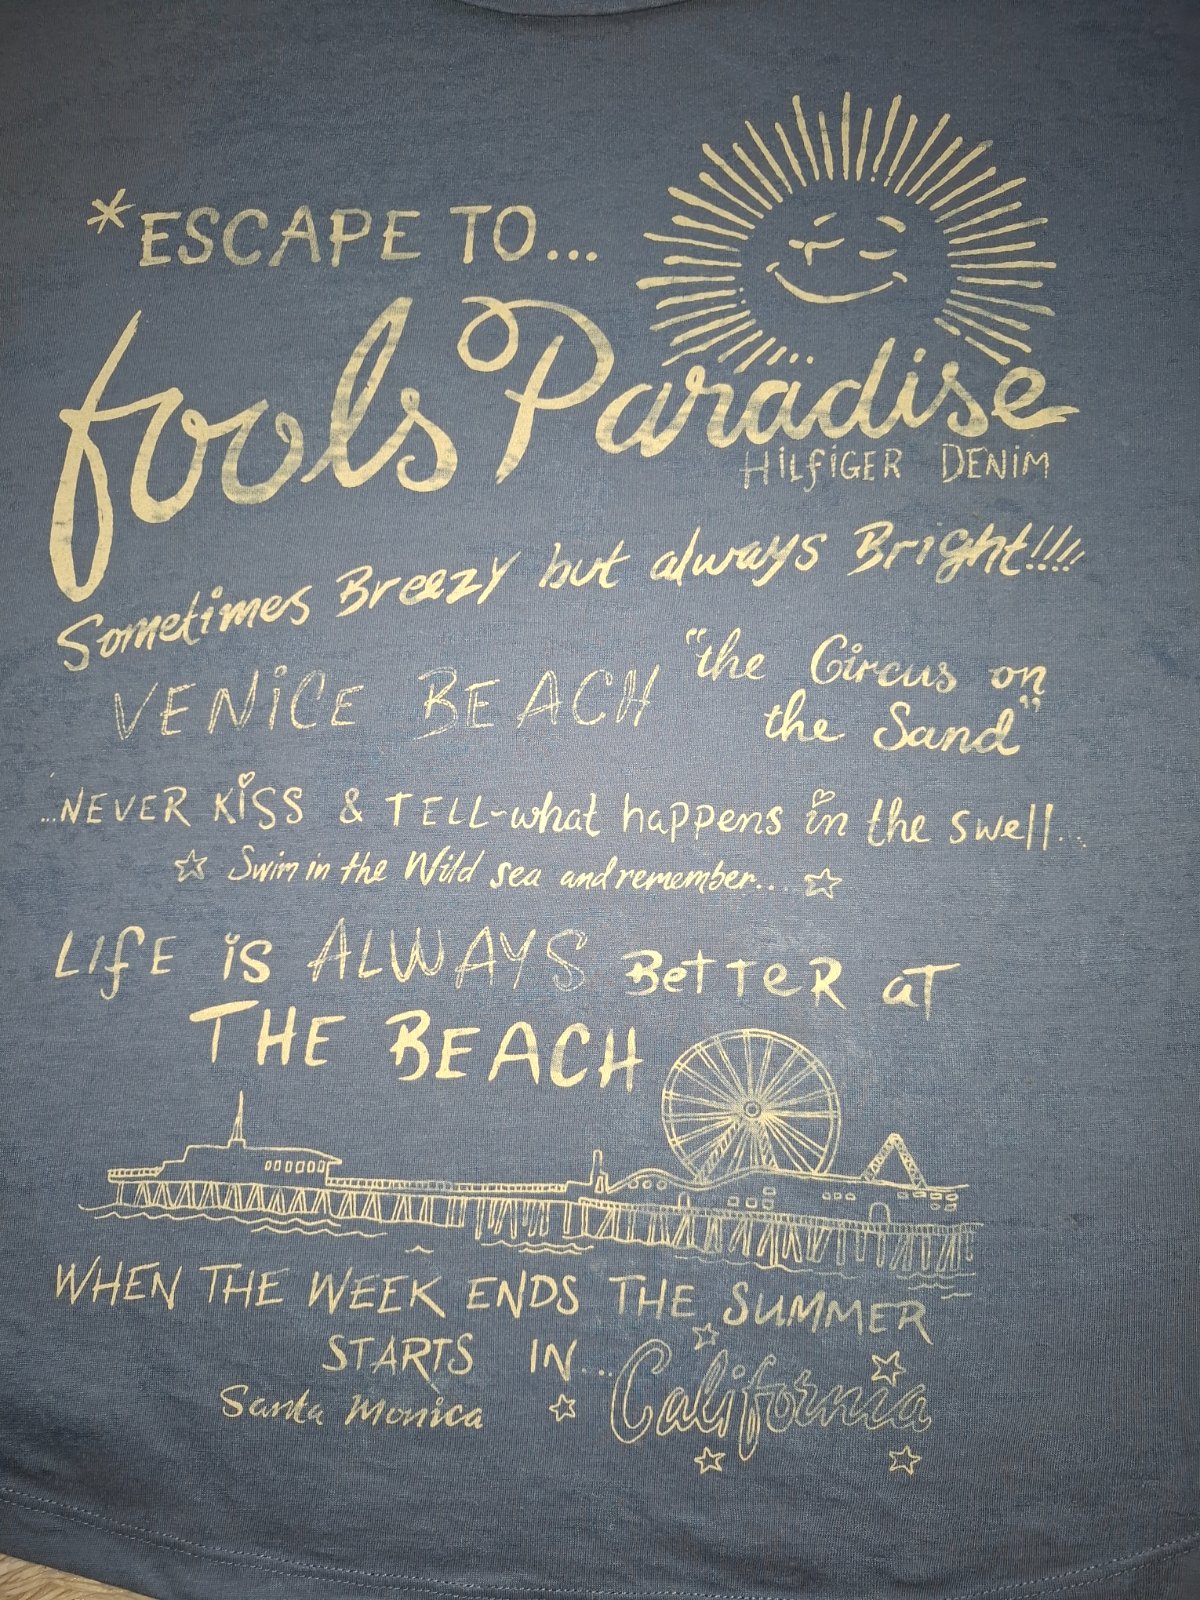 *ESCAPE TO...
fools Paradise
HiLfiGER DENiM
Sometimes Breezy but always Bright!!!!
VENiCE BEACH
"the Circus on
the Sand"
...NEVER KiSS & TELL-what happens in the swell...
Swim in the Wild sea and remember...
LIfE iS ALWAYS BetTeR aT
THE BEACH
WHEN THE WEEK ENDS THE SUMMER
STARTS IN...
California
Santa Monica